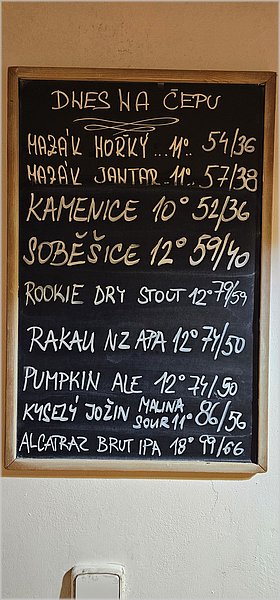 DNES NA ČEPU
MAZÁK HOŘKÝ...11°. 54/36
MAZÁK JANTAR..11°. 57/38
KAMENICE 10° 52/36
SOBĚŠICE 12° 59/40
ROOKIE DRY STOUT 12° 79/59
RAKAU NZ APA 12° 74/50
PUMPKIN ALE 12° 74/50
KYSELÝ JOŽIN MALINA SOUR 11° 86/56
ALCATRAZ BRUT IPA 18° 99/66